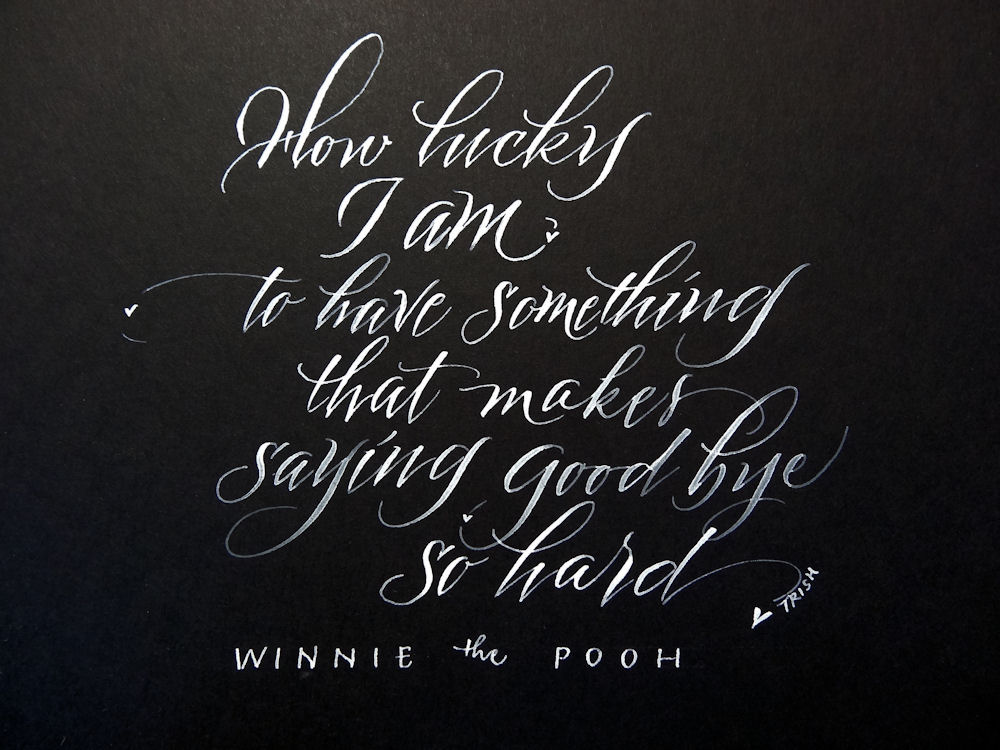 How lucky
I am
to have something
that makes
saying good bye
so hard
TRISH
WINNIE the POOH